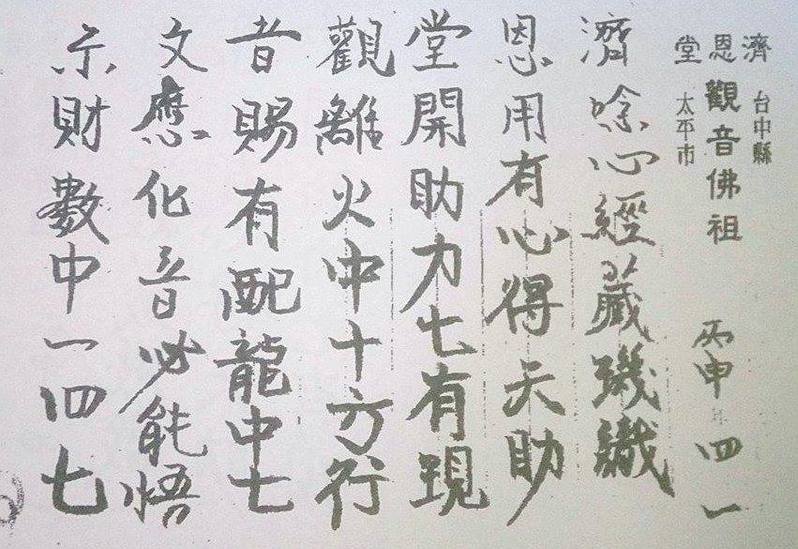 台中縣
太平市
濟恩堂
觀音佛祖
丙申四一
濟唸心經藏璣識
恩用有心得天助
堂開助力七有現
觀離火中十方行
音賜有配龍中七
文應化音必能悟
示財數中一四七